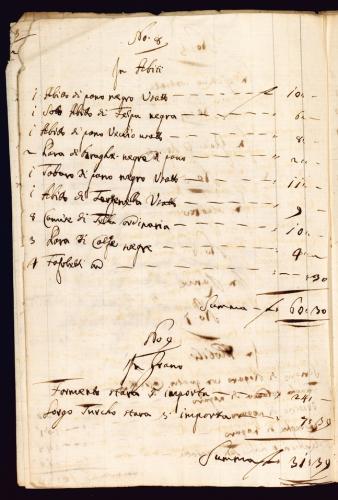 No. 8
In Abiti
1 Abito di pano negro Usato — 10 —
1 Solo Abito di Felpa negra — 6 —
1 Abito di pano Vechio usato — 8 —
2 Para di Braghe negre di pano — 2 —
1 Tabaro di pano negro Usato — 11 —
1 Abito di Usato — 9
8 Camise di Tella ordinaria — 10 —
3 Para di Calze negre — 4 —
4 Fazoletti — 30
Summa — 60:30
No. 9
In Grano
Formento stara importa — 24 —
Sorgo Turcho stara 3 importa — 7:39
Summa 31:39